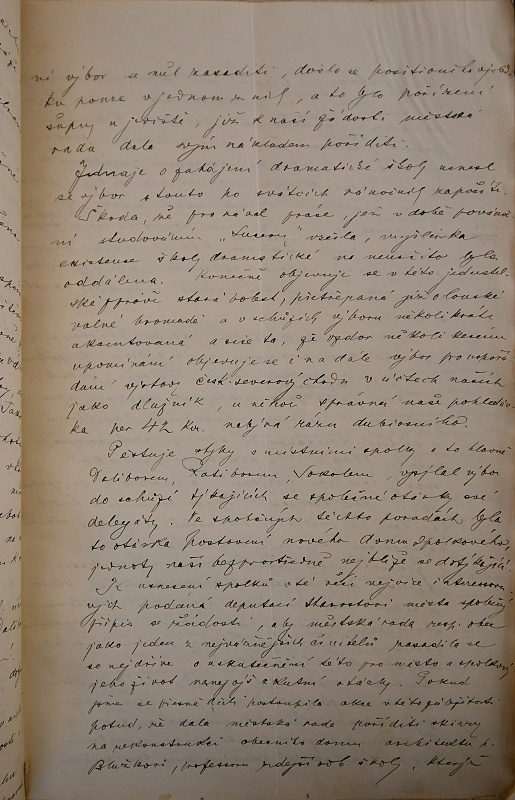 ní výbor se měl zasaditi, došlo se positivního výsled
ku pouze v jednom z nich, a to bylo pořízení
šupny u jeviště, již k naší žádosti městská
rada dala svým nákladem poříditi.
Jednaje o zahájení dramatické školy usnesl
se výbor s touto po svátcích vánočních započíti.
Škoda, že pro nával práce, jež v době pováno
ní studováním „Lucerny" vzešla, myšlénka
existence školy dramatické na neurčito byla
oddálena. Konečně objevuje se v této jednatel-
ské zprávě stará bolest, přetřepaná již o loňské
valné hromadě a v schůzích výboru několikráte
akcentovaná a sice ta, že vzdor několikerému
upomínání objevuje se i na dále výbor pro uspořá
dání výstavy česk. severovýchodu v účtech našich
jako dlužník, u něhož správnost naše pohledáv-
ka per 42 Kr. nabývá rázu dubiosního.
Pěstuje styky s místními spolky a to hlavně
Daliborem, Ratiborem, Sokolem, vysílal výbor
do schůzí týkajících se společné otázky své
delegáty. Ve společných těchto poradách byla
to otázka postavení nového domu spolkového,
jednoty naší bezprostředně nejblíže se dotýkající.
K usnesení spolků v té věci nejvíce interesova
ných podána deputací starostovi města společný
přípis se žádostí, aby městská rada resp. obec
jako jeden z nejvážnějších činitelů zasadila se
co nejdříve o uskutečnění této pro město a spolkový
jeho život nanejvýš akutní otázky. Pokud
jsme se přesvědčili postoupila akce v této záležitosti
potud, že dala městská rada poříditi skizzy
na rekonstrukci obecního domu architektu p.
Blažkovi, professoru zdejší odb. školy, kterýž